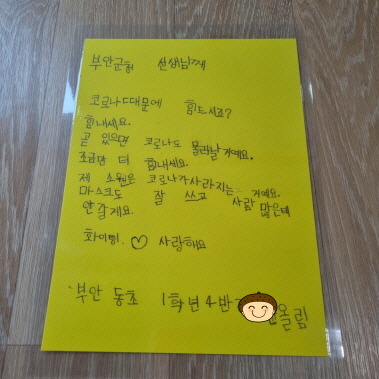 부안군청 선생님께
코로나드대문에 힘드시죠?
힘내세요.
곧 있으면 코로나도 물러날 거예요.
조금만 더 힘내세요.
제 소원은 코로나가 사라지는 거예요.
마스크도 잘 쓰고 사람 많은데
안갈게요.
화이팅. ♡ 사랑해요
부안 동초 1학년 4반 올림